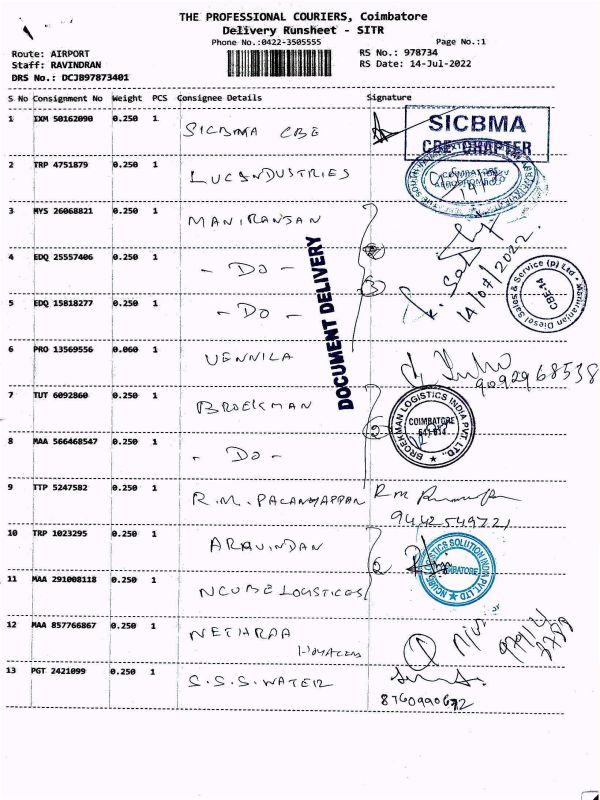 THE PROFESSIONAL COURIERS, Coimbatore
Delivery Runsheet - SITR
Phone No.:0422-3505555 Page No.:1
Route: AIRPORT RS No.: 978734
Staff: RAVINDRAN RS Date: 14-Jul-2022
DRS No.: DCJB97873401
S No Consignment No Weight PCS Consignee Details Signature
1 IXM 50162090 0.250 1 SICBMA CBE
SICBMA
CBE CHAPTER
2 TRP 4751879 0.250 1 LUCINDUSTRIES
COIMBATORE
3 MYS 26068821 0.250 1 MANIRANJAN
4 EDQ 25557406 0.250 1 - DO -
14/07/2022
Maniranjan Diesel Sales & Service (p) Ltd
CBE-14
5 EDQ 15818277 0.250 1 - DO -
DOCUMENT DELIVERY
6 PRO 13569556 0.060 1 VENNILA
9092968538
7 TUT 6092860 0.250 1 BROEKMAN
BROEKMAN LOGISTICS INDIA PVT. LTD.,
COIMBATORE
641 014
8 MAA 566468547 0.250 1 - DO -
9 TTP 5247582 0.250 1 R.M. PALANIYAPPAN
9442549721
10 TRP 1023295 0.250 1 ARAVINDAN
NCUBE LOGISTICS SOLUTION INDIA PVT LTD
COIMBATORE
11 MAA 291008118 0.250 1 NCUBE LOGISTICES
12 MAA 857766867 0.250 1 NETHRAA
13 PGT 2421099 0.250 1 S.S.S.WATER
8760990672